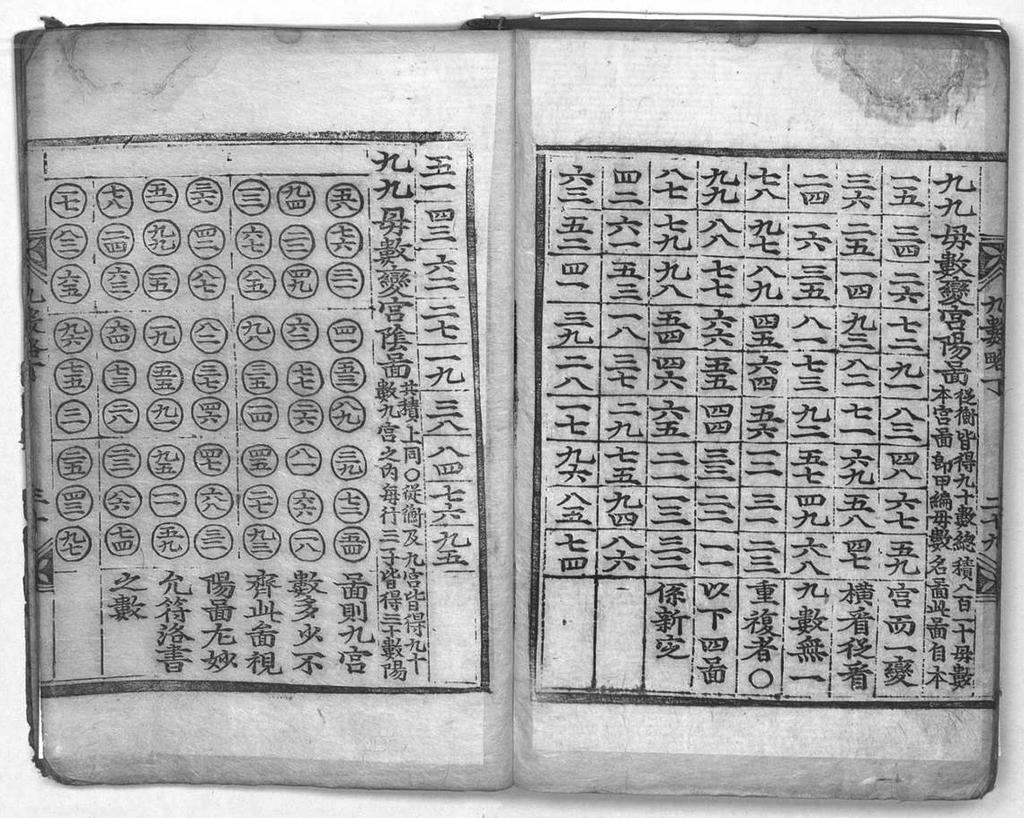 九九母數變宮陽圖
從衡皆得九十數總積八百一十母數
本宮圖卽甲編母數名圖此圖自本
一五 三四 二六 七二 九一 八三 四八 六七 五九 宮而一變
三六 二五 一四 九三 八二 七一 六九 五八 四七 橫看從看
二四 一六 三五 八一 七三 九二 五七 四九 六八 九數無一
七八 九七 八九 四五 六四 五六 一二 三一 二三 重復者〇
九九 八八 七七 六六 五五 四四 三三 二二 一一 以下四圖
八七 七九 九八 五四 四六 六五 二一 一三 三二 係新定
四二 六一 五三 一八 三七 二九 七五 九四 八六
六三 五二 四一 三九 二八 一七 九六 八五 七四
九數略丁
二十九
五一 四三 六二 二七 一九 三八 八四 七六 九五
九九母數變宮陰圖
共積上同〇從衡及九宮皆得九十
數九宮之內每行三寸皆得三十數陽
五八 七六 三一 四一 五三 八九 三九 七二 五四 圖則九宮
九四 二二 四九 六二 七七 二六 八一 六六 一八 數多少不
一三 六七 八五 九八 三五 一四 四五 二七 九三 齊此圖視
三六 四二 八七 八二 三七 四六 四七 六八 三二 陽圖尤妙
五一 九九 一五 一九 五五 九一 九五 一一 五九 允符洛書
七八 二四 六三 六四 七三 二八 二三 八六 七四 之數
一七 八三 六五 九六 七五 二一 二五 四三 九七